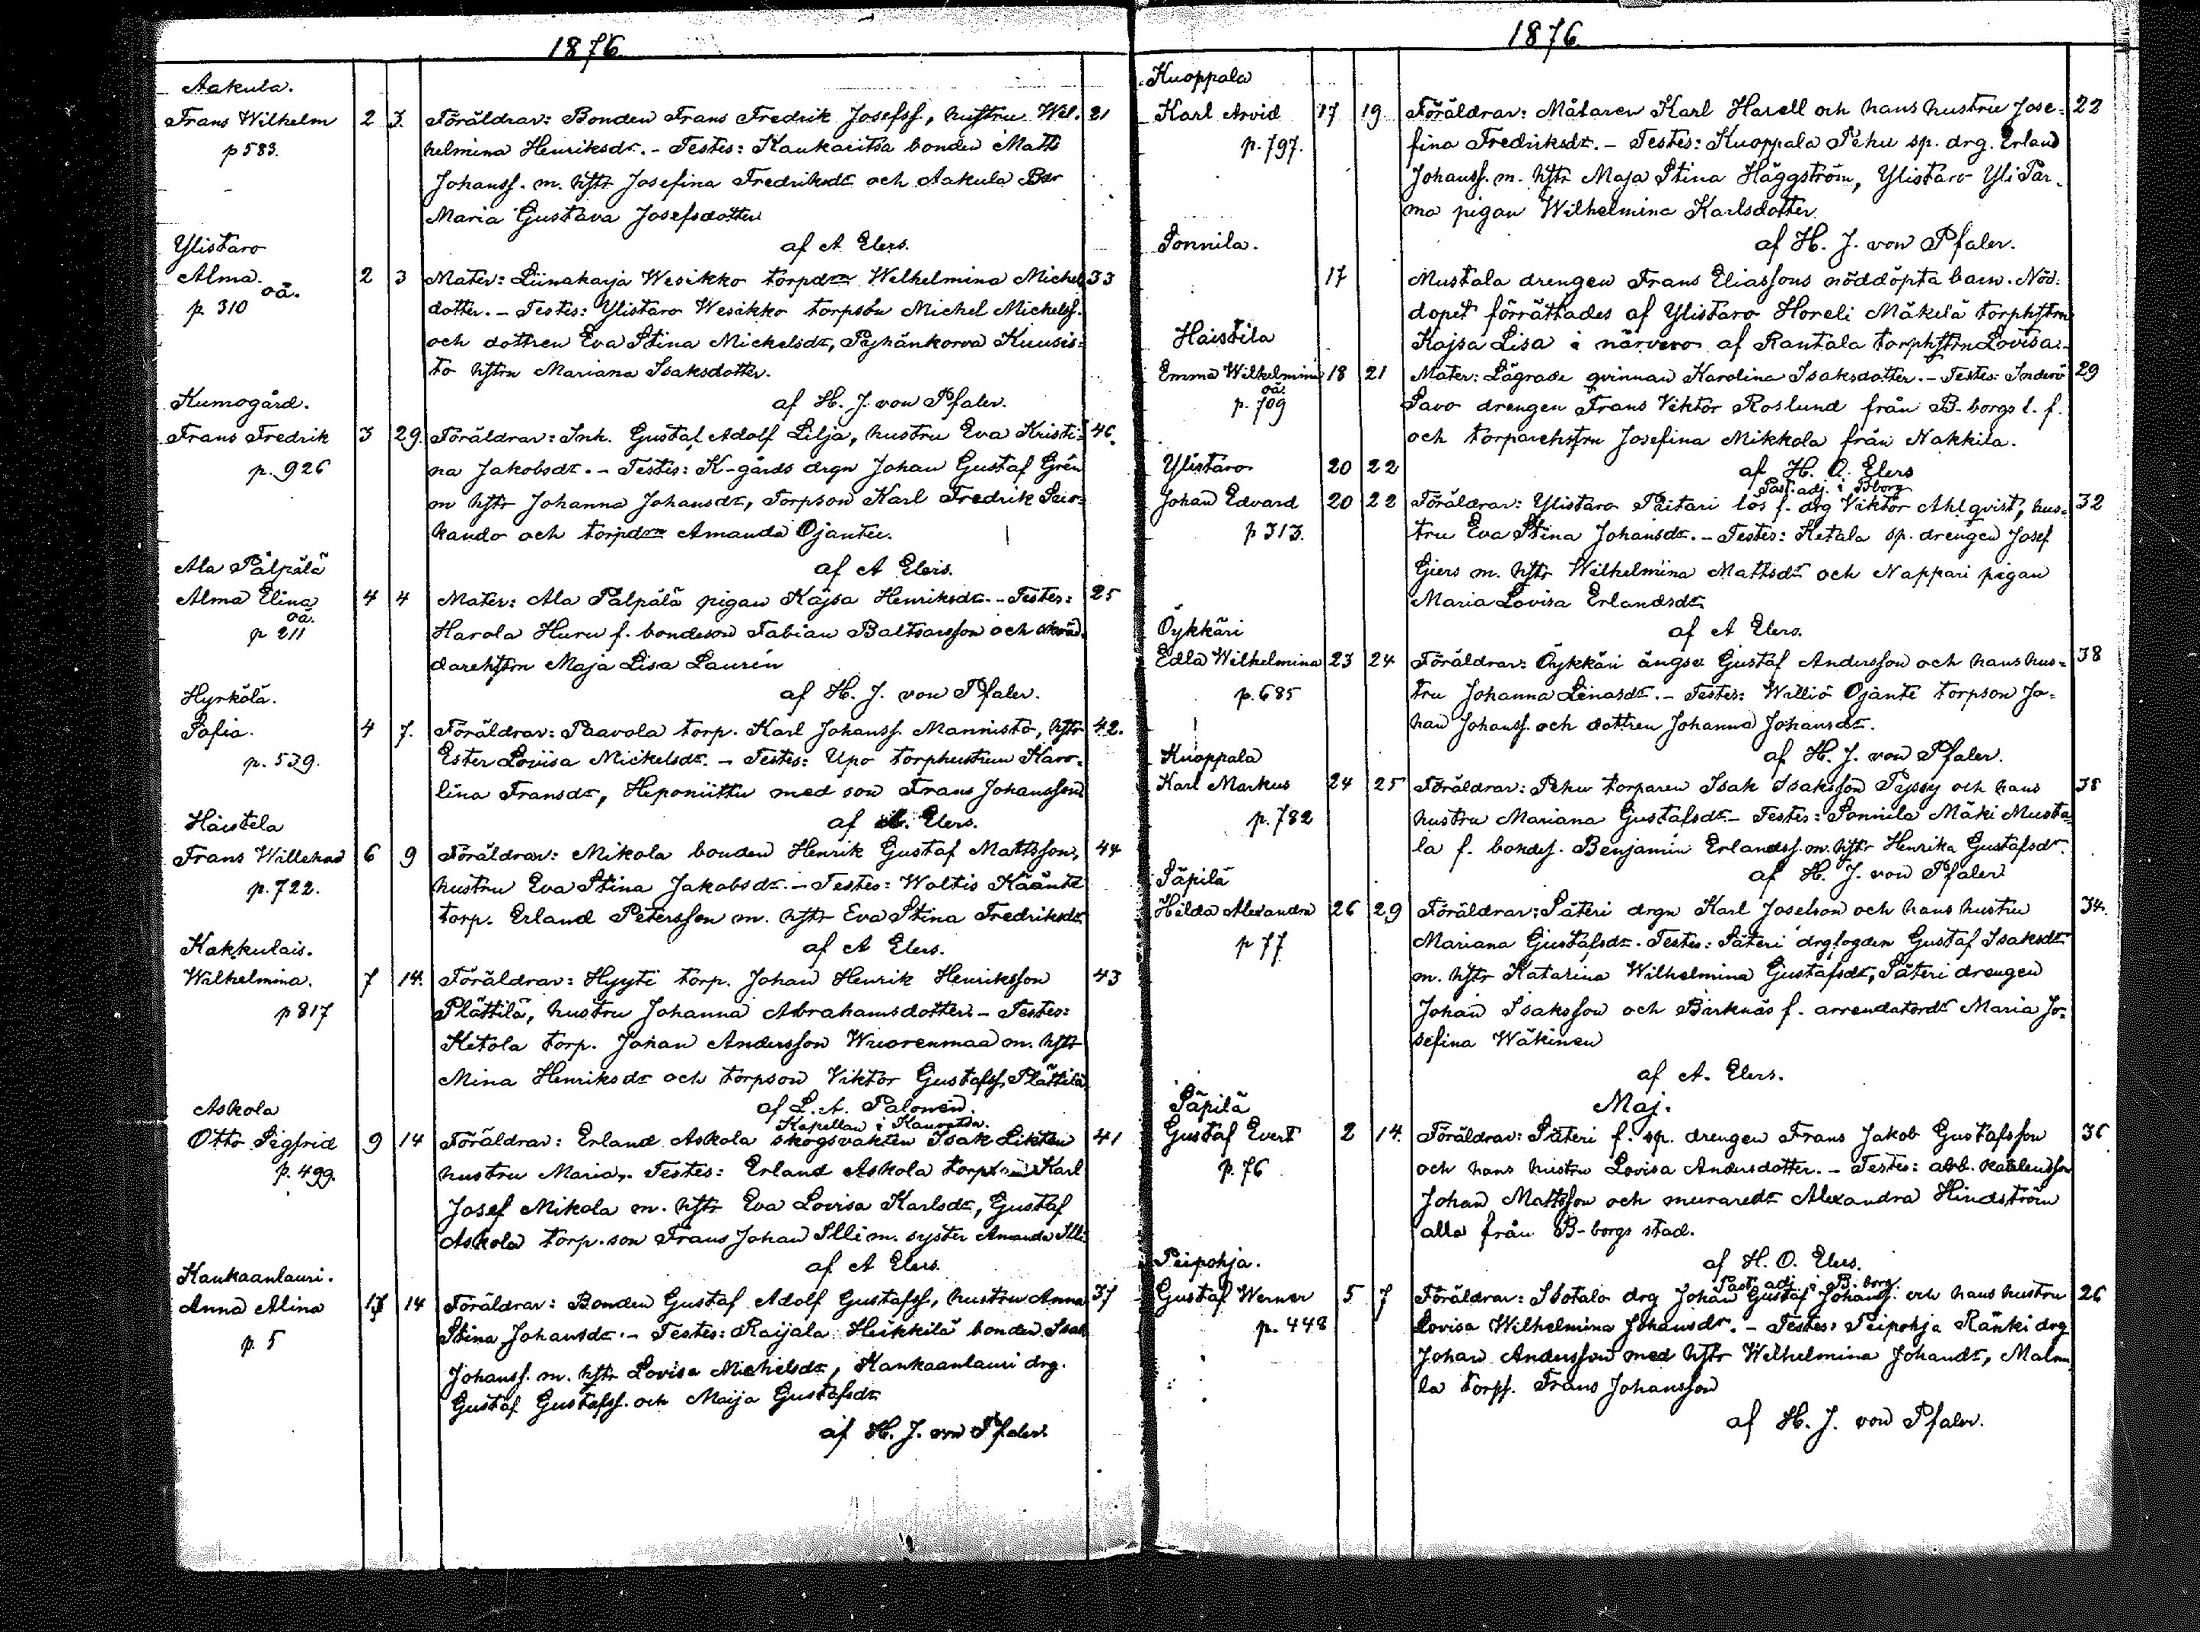 1876
Aakula.
Frans Wilhelm 2 3 Föräldrar: Bonden Frans Fredrik Josefss, hustru Wil- 21
p 583. helmina Henriksdr. - Testes: Kaukaritsa bonden Matts
Johanss. m. hstr Josefina Fredriksdr och Aakula Bdr
Maria Gustava Josefsdotter
Ylistaro af A Elers.
Alma. oä. 2 3 Mater: Liinakarja Wesikko torpdr Wilhelmina Michels 33
p. 310 dotter. - Testes: Ylistaro Wesikko torpson Michel Michelss.
och dottren Eva Stina Mickelsdr, Pyhänkorva Kuusis-
to hstru Mariana Isaksdotter.
Kumogård. af H. J. von Pfaler.
Frans Fredrik 3 29. Föräldrar: Inh. Gustaf Adolf Lilja, hustru Eva Kristi- 46.
p. 926 na Jakobsdr. - Testes: K-gårds drgn Johan Gustaf Grén
m hstr Johanna Johansdr, Torpson Karl Fredrik
och torpdr Amanda Ojantei.
Ala Pälpälä af A Elers.
Alma Elina 4 4 Mater: Ala Pälpälä pigan Kajsa Henriksdr. - Testes: 25
oä.
p 211 Harola Huru f. bondeson Fabian Baltsarsson och skräd-
darehstrn Maja Lisa Laurén
Hyrkölä. af H. J. von Pfaler.
Sofia. 4 7. Föräldrar: Paavola torp. Karl Johanss. Mannistö, hstr 42.
p. 539. Ester Loviisa Mickelsdr. - Testes: Upo torphustrun Karo-
lina Fransdr, Heponiittu med son Frans Johansson
Haistela af A. Elers.
Frans Willehad 6 9 Föräldrar: Mikola bonden Henrik Gustaf Mattsson, 44
p. 722. hustru Eva Stina Jakobsdr. - Testes: Woltis Kääntä
torp. Erland Petersson m. hstr Eva Stina Fredriksdr
Kakkulais. af A Elers.
Wilhelmina. 7 14. Föräldrar: Hyyti torp. Johan Henrik Henriksson 43
p 817 Plättilä, hustru Johanna Abrahamsdotter. - Testes:
Ketola torp. Johan Andersson Wuorenmaa m. hstr
Mina Henriksdr och torpson Viktor Gustafss. Plättilä
Askola af L. A. Palonen.
Kapellan i Kauvatsa.
Otto Sigfrid 9 14 Föräldrar: Erland Askola skogsvakten Isak Liktén 41
p. 499. hustru Maria. Testes: Erland Askola Karl
Josef Mikola m. hstr Eva Lovisa Karlsdr, Gustaf
Askola torp. son Frans Johan Illi m. syster Amanda Illi
Kankaanlauri. af A Elers.
Anna Alina 13 14 Föräldrar: Bonden Gustaf Adolf Gustafss, hustru Anna 37
p. 5 Stina Johansdr. - Testes: Raijala Heikkilä bonden Isak
Johanss. m. hstr Lovisa Michelsdr, Kankaanlauri drg.
Gustaf Gustafss. och Maija Gustafsdr
af H. J. von Pfaler.
1876
Kuoppala
Karl Arvid 17 19 Föräldrar: Målaren Karl Harell och hans hustru Jose- 22
p. 797. fina Fredriksdr. - Testes: Kuoppala Pehu sp. drg. Erland
Johanss. m. hstr Maja Stina Häggström, Ylistaro Yli Pär-
mä pigan Wilhelmina Karlsdotter.
Sonnila. af H. J. von Pfaler.
17 Mustala drengen Frans Eliassons nöddöpta barn. Nöd-
dopet förrättades af Ylistaro Horeli Mäkelä torphstrn
Haistila Kajsa Lisa i närvaro af Rantala torphstrn Lovisa.
Emma Wilhelmina 18 21 Mater: Lägrade qvinnan Karolina Isaksdotter. - Testes: Inderö 29
oä.
p. 709 Savo drengen Frans Viktor Roslund från B-borgs l. f.
och torparehstrn Josefina Mikkola från Nakkila.
Ylistaro 20 22 af H. O. Elers
Past. adj. i Bborg
Johan Edvard 20 22 Föräldrar: Ylistaro Peitari lös f. drg Viktor Ahlqvist, hus- 32
p 313. tru Eva Stina Johansdr. - Testes: Ketala sp. drengen Josef
Giers m. hstr Wilhelmina Mattsdr och Nappari pigan
Maria Lovisa Erlandsdr.
Öykkäri af A Elers.
Edla Wilhelmina 23 24 Föräldrar: Öykkäri ängsv Gustaf Andersson och hans hus- 38
p. 685 tru Johanna Lenasdr. - Testes: Williö Ojante torpson Jo-
han Johanss. och dottren Johanna Johansdr.
Kuoppala af H. J. von Pfaler.
Karl Markus 24 25 Föräldrar: Pehu torparen Isak Isaksson Pyssy och hans 38
p. 782 hustru Mariana Gustafsdr. - Testes: Sonnila Mäki Musta-
la f. bondes. Benjamin Erlandss. m. hstr Henrika Gustafsdr.
Säpilä af H. J. von Pfaler
Hilda Alexandra 26 29 Föräldrar: Säteri drgn Karl Joselson och hans hustru 34.
p 77 Mariana Gustafsdr. Testes: Säteri drgfogden Gustaf Isaksdr
m. hstr Katarina Wilhelmina Gustafsdr, Säteri drengen
Johan Isaksson och Birknäs f. arrendatordr Maria Jo-
sefina Wäkinen
af A. Elers.
Säpilä Maj.
Gustaf Evert 2 14. Föräldrar: Säteri f. sp. drengen Frans Jakob Gustafsson 36
p. 76 och hans hustru Lovisa Andersdotter. - Testes: arb.
Johan Mattsson och muraredr Alexandra Hindström
alla från B-borgs stad.
Peipohja. af H. O. Elers.
Past. adj. i B. borg.
Gustaf Werner 5 7 Föräldrar: Isotalo drg Johan Gustaf Johanss. och hans hustru 26
p. 448 Lovisa Wilhelmina Johansdr. - Testes: Peipohja Ränki drg
Johan Andersson med hstr Wilhelmina Johandr, Malm
la torps. Frans Johansson
af H. J. von Pfaler.